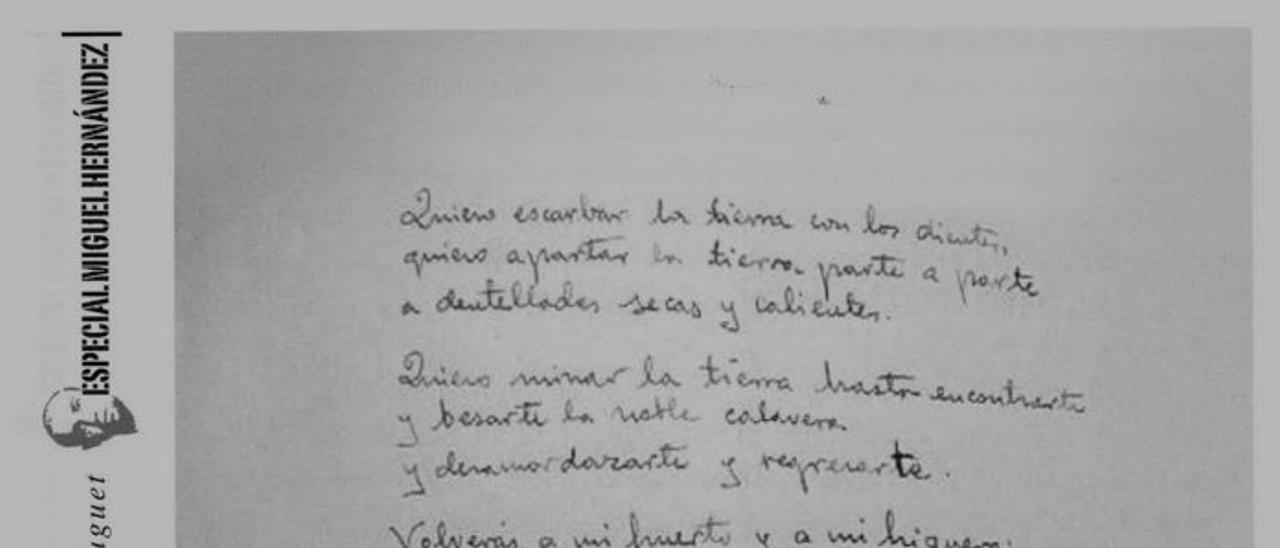 ESPECIALMIGUELHERNÁNDEZ
Quiero escarbar la tierra con los dientes,
quiero apartar la tierra parte a parte
a dentelladas secas y calientes.
Quiero minar la tierra hasta encontrarte
y besarte la noble calavera
y desamordazarte y regresarte.
Volverás a mi huerto y a mi higuera: